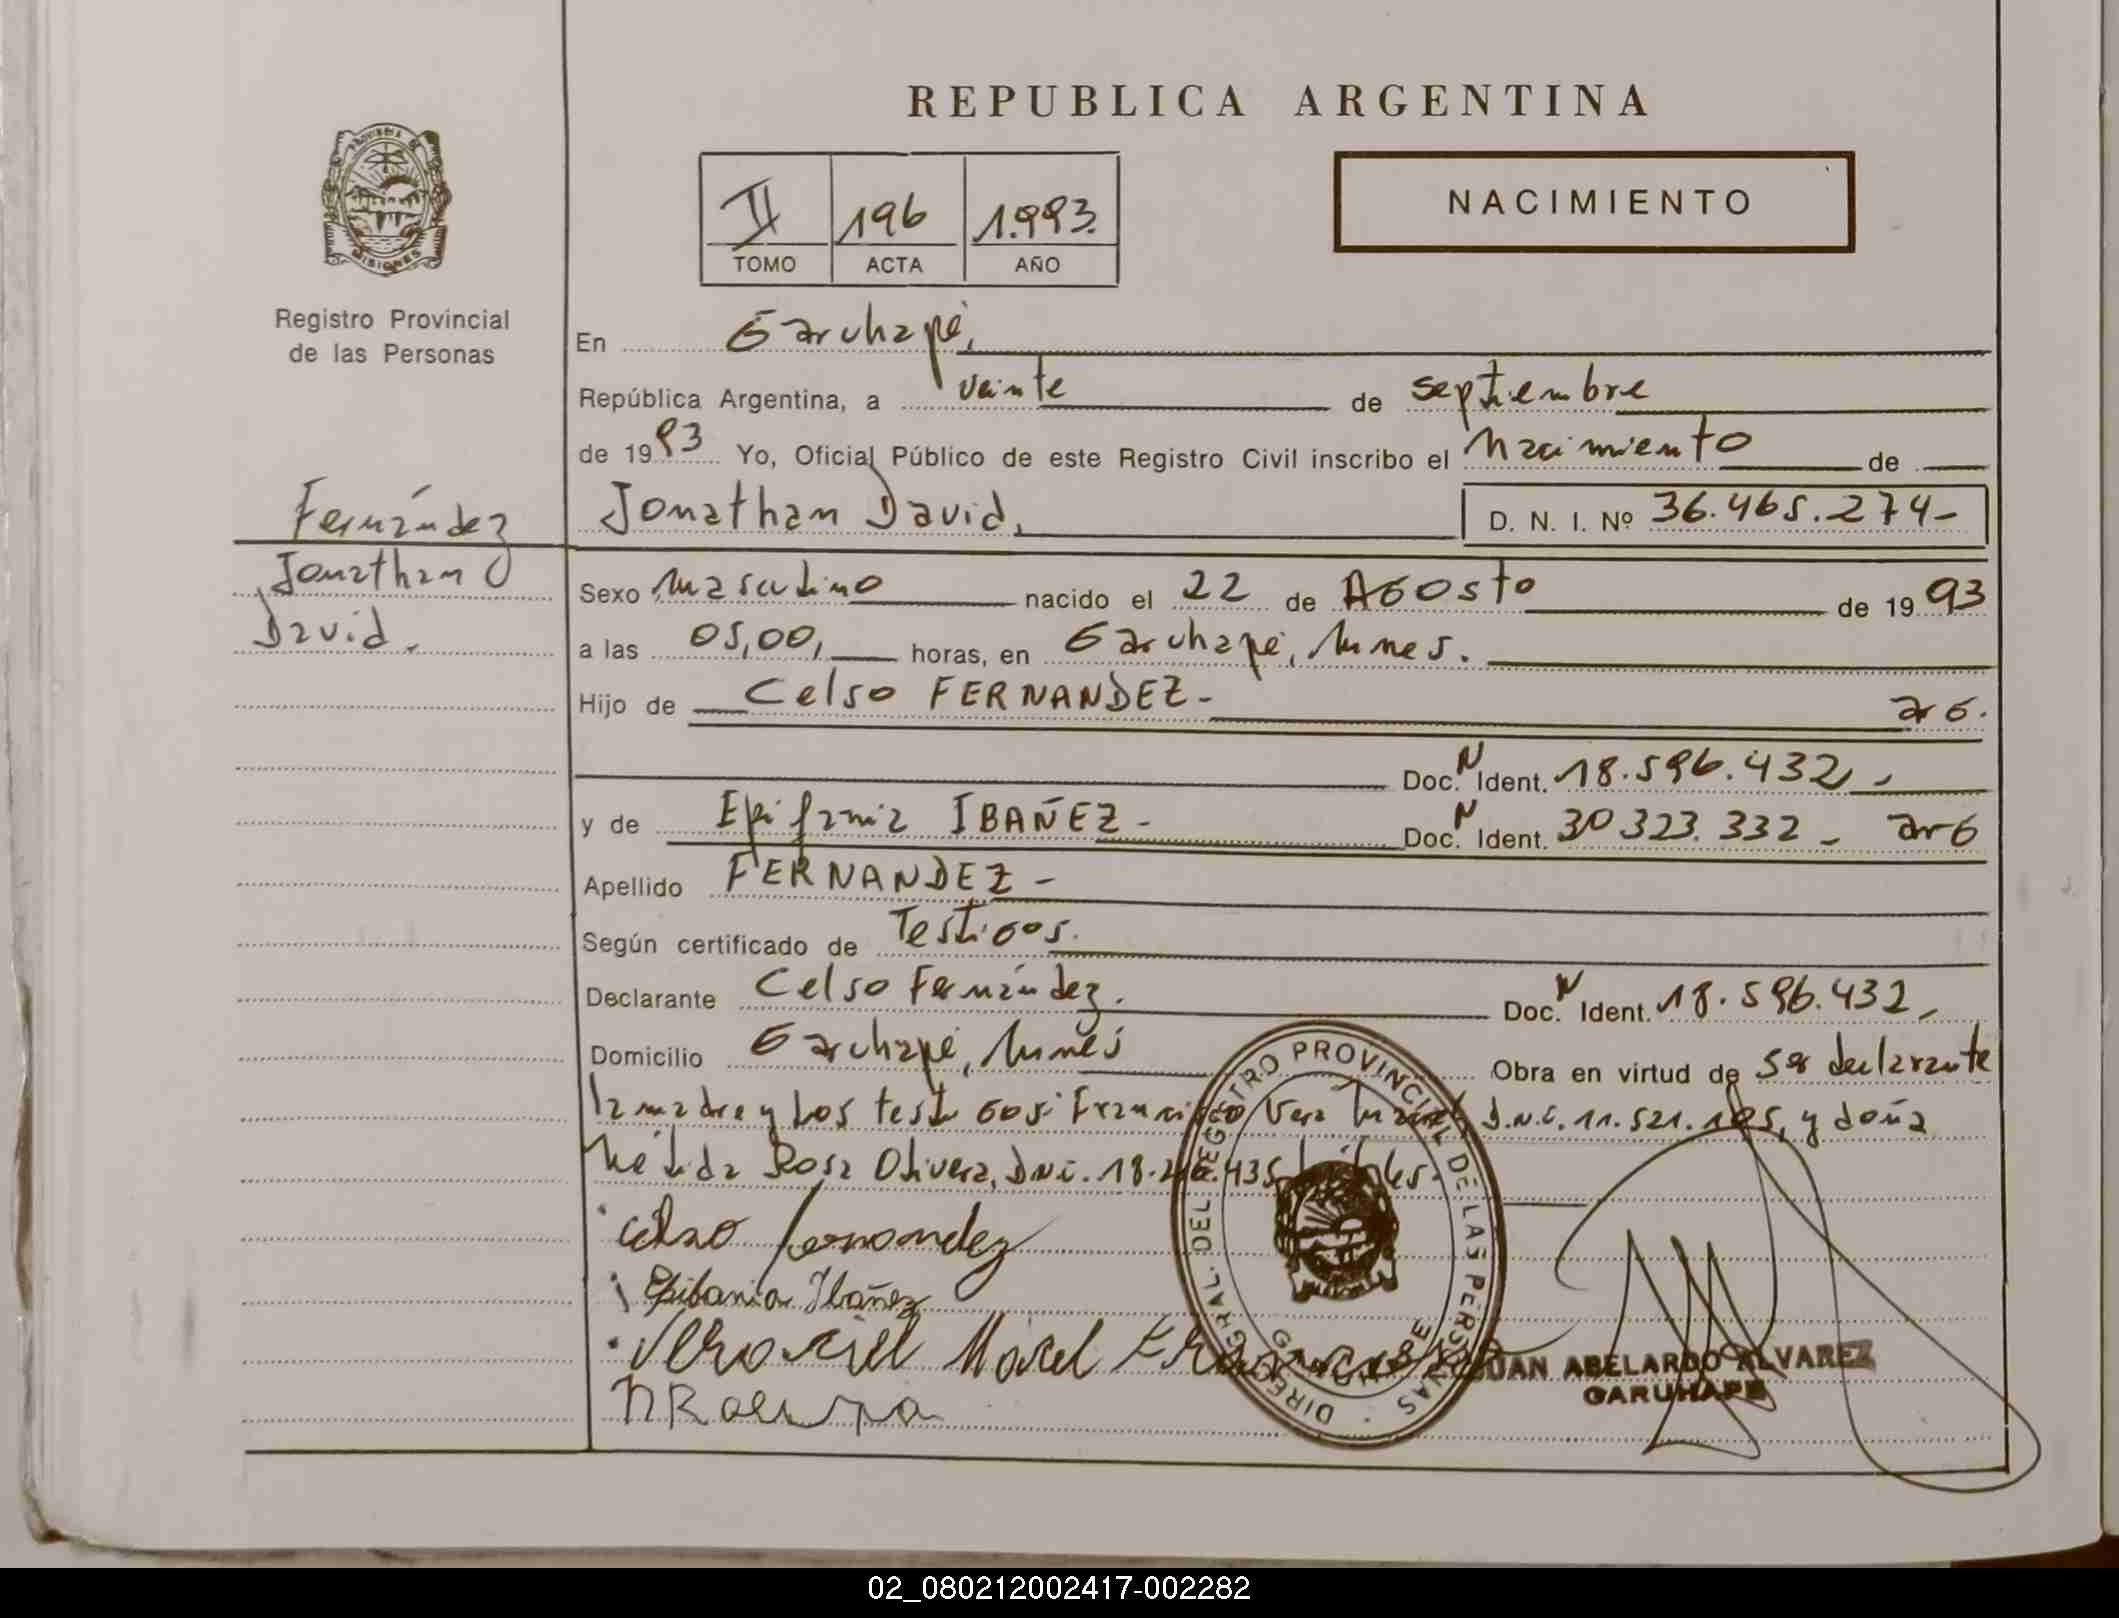 REPUBLICA ARGENTINA
NACIMIENTO
PROVINCIA DE
MISIONES
Registro Provincial
de las Personas
II 196 1.993.
TOMO ACTA AÑO
En Garuhapé,
República Argentina, a veinte de septiembre
de 1993 Yo, Oficial Público de este Registro Civil inscribo el nacimiento de
Jonathan David, D. N. I. Nº 36.465.274-
Fernández
Jonathan
David.
Sexo masculino nacido el 22 de AGosto de 1993
a las 05,00, horas, en Garuhapé, Mnes.
Hijo de Celso FERNANDEZ- arG.
Doc. N Ident. 18.596.432,-
y de Epifania IBAÑEZ- Doc. N Ident. 30 323.332- arG
Apellido FERNANDEZ-
Según certificado de Testigos.
Declarante Celso Fernández. Doc. N Ident. 18.596.432,
Domicilio Garuhapé, Mnes Obra en virtud de ser declarante
la madre y Los testigos: Francisco Vera D.N.i. 11.521.195, y doña
Nélida Rosa Olivera, D.N.i. 18.
Celso fernandez
Epifania Ibañez
Morel
DIREC. GRAL. DEL REGISTRO PROVINCIAL DE LAS PERSONAS
GARUHAPE
JUAN ABELARDO ALVAREZ
GARUHAPE
02_080212002417-002282